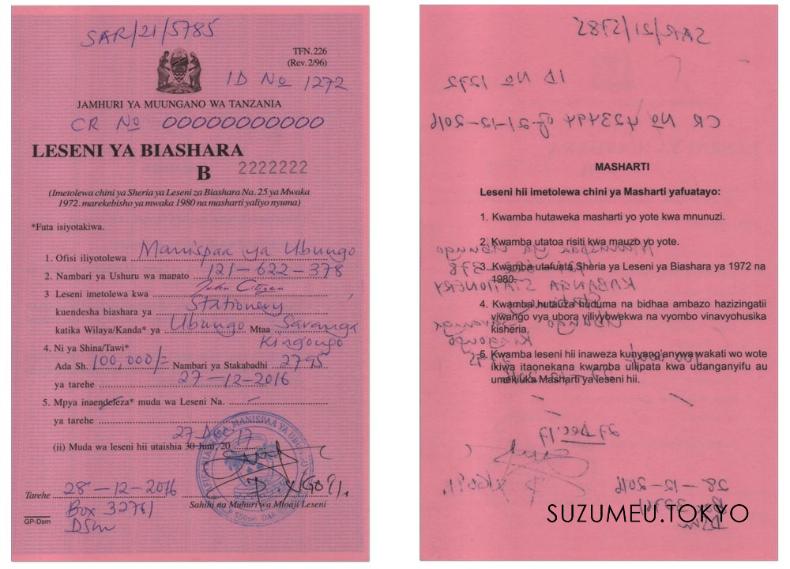 SAR/21/5785
TFN. 226
(Rev. 2/96)
ID No 1272
JAMHURI YA MUUNGANO WA TANZANIA
CR No 00000000000
LESENI YA BIASHARA
B 2222222
(Imetolewa chini ya Sheria ya Leseni za Biashara Na. 25 ya Mwaka
1972. marekebisho ya mwaka 1980 na masharti yaliyo nyuma)
*Futa isiyotakiwa.
1. Ofisi iliyotolewa Manispaa ya Ubungo
2. Nambari ya Ushuru wa mapato 121-622-378
3 Leseni imetolewa kwa John Citizen
kuendesha biashara ya Stationery
katika Wilaya/Kanda* ya Ubungo Mtaa Saranga
Kingongo
4. Ni ya Shina/Tawi*
Ada Sh. 100,000/= Nambari ya Stakabadhi 2795
ya tarehe 27-12-2016
5. Mpya inaendeleza* muda wa Leseni Na. -
ya tarehe -
27 Dec 17
(ii) Muda wa leseni hii utaishia 30 Juni, 20
Tarehe 28-12-2016
Sahihi na Muhuri wa Mtoaji Leseni
Box 32761
Dsm
GP-Dsm
SAR/21/5785
ID No 1272
CR No 423494 of 21-12-2016
MASHARTI
Leseni hii imetolewa chini ya Masharti yafuatayo:
1. Kwamba hutaweka masharti yo yote kwa mnunuzi.
2. Kwamba utatoa risiti kwa mauzo yo yote.
3. Kwamba utafuata Sheria ya Leseni ya Biashara ya 1972 na
1980.
4. Kwamba hutauza huduma na bidhaa ambazo hazizingatii
viwango vya ubora vilivyowekwa na vyombo vinavyohusika
kisheria.
5. Kwamba leseni hii inaweza kunyang'anywa wakati wo wote
ikiwa itaonekana kwamba ulilipata kwa udanganyifu au
umekiuka Masharti ya leseni hii.
27 Dec, 17
28-12-2016
Dsm
SUZUMEU.TOKYO